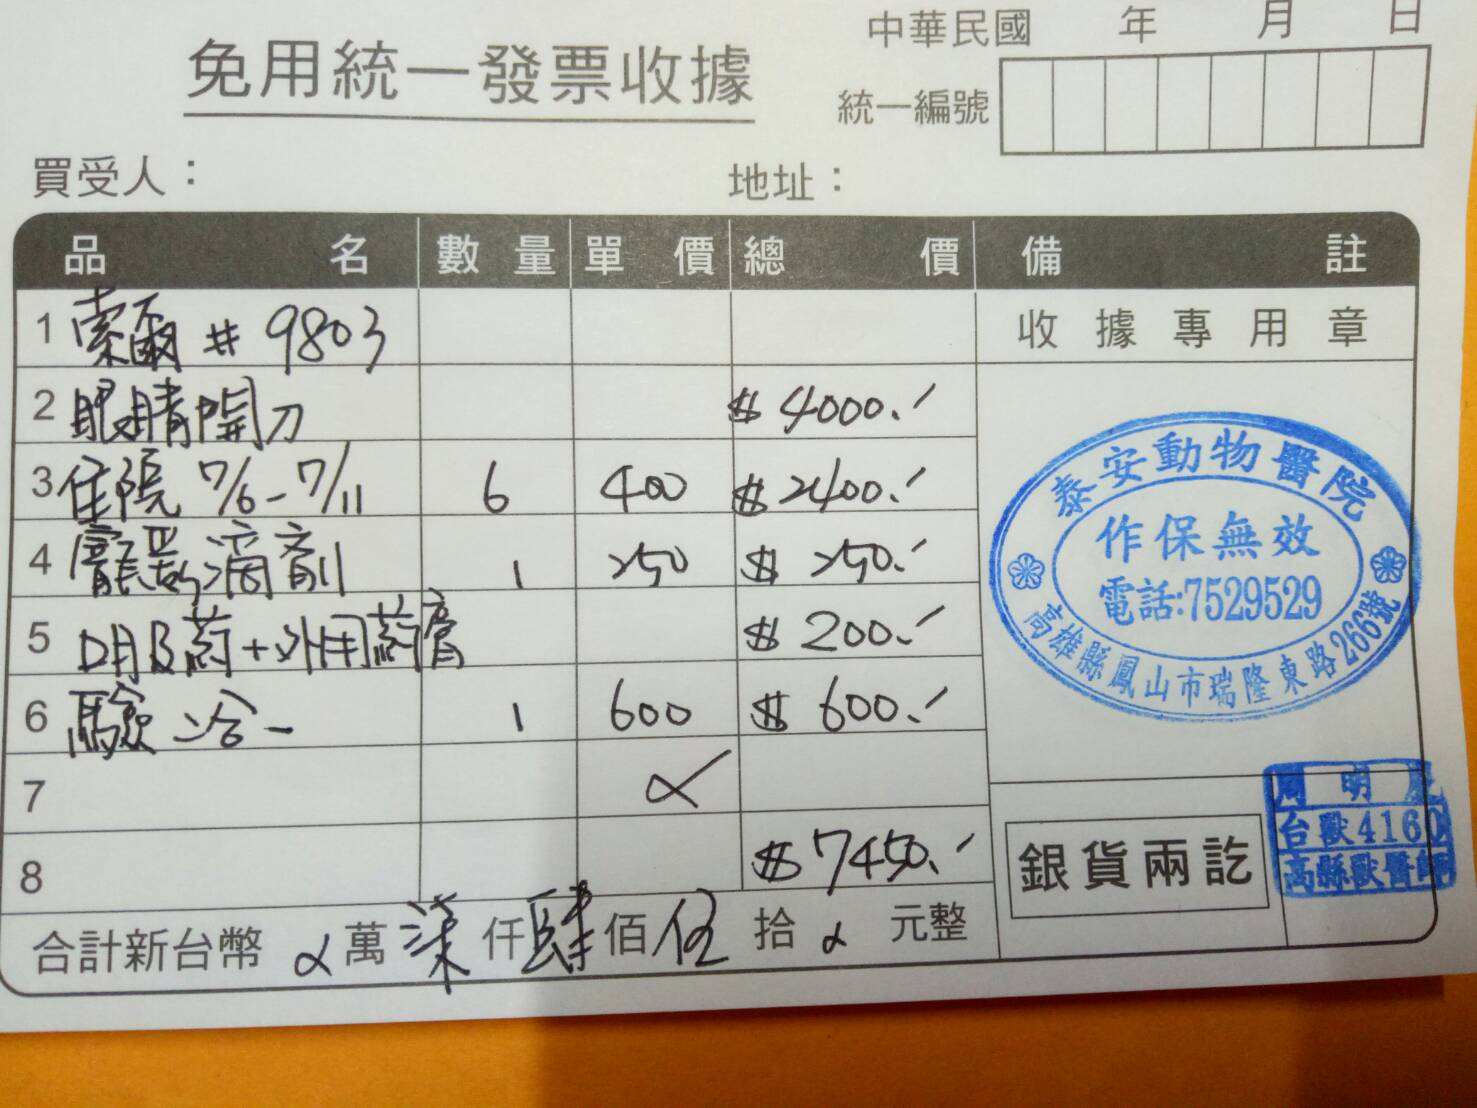 中華民國 年 月 日
免用統一發票收據
統一編號
買受人： 地址：
品名 數量 單價 總價 備註
1 索爾 # 9803 收據專用章
2 眼睛開刀 $ 4000.
3 住院 7/6-7/11 6 400 $ 2400.
4 寵愛滴劑 1 250 $ 250.
5 口服药+外用药膏 $ 200.
6 驗 1 600 $ 600.
7
8 $ 7450.
合計新台幣 萬 柒 仟 肆 佰 伍 拾 元整
泰安動物醫院
作保無效
電話:7529529
高雄縣鳳山市瑞隆東路266號
銀貨兩訖
周明
台獸4160
高縣獸醫師